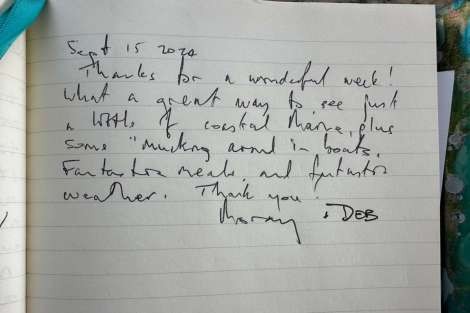 Sept 15 2024
Thanks for a wonderful week!
What a great way to see just
a little of coastal Maine, plus
some "mucking around" in boats.
Fantastic meals, and fantastic
weather. Thank you.
& DEB